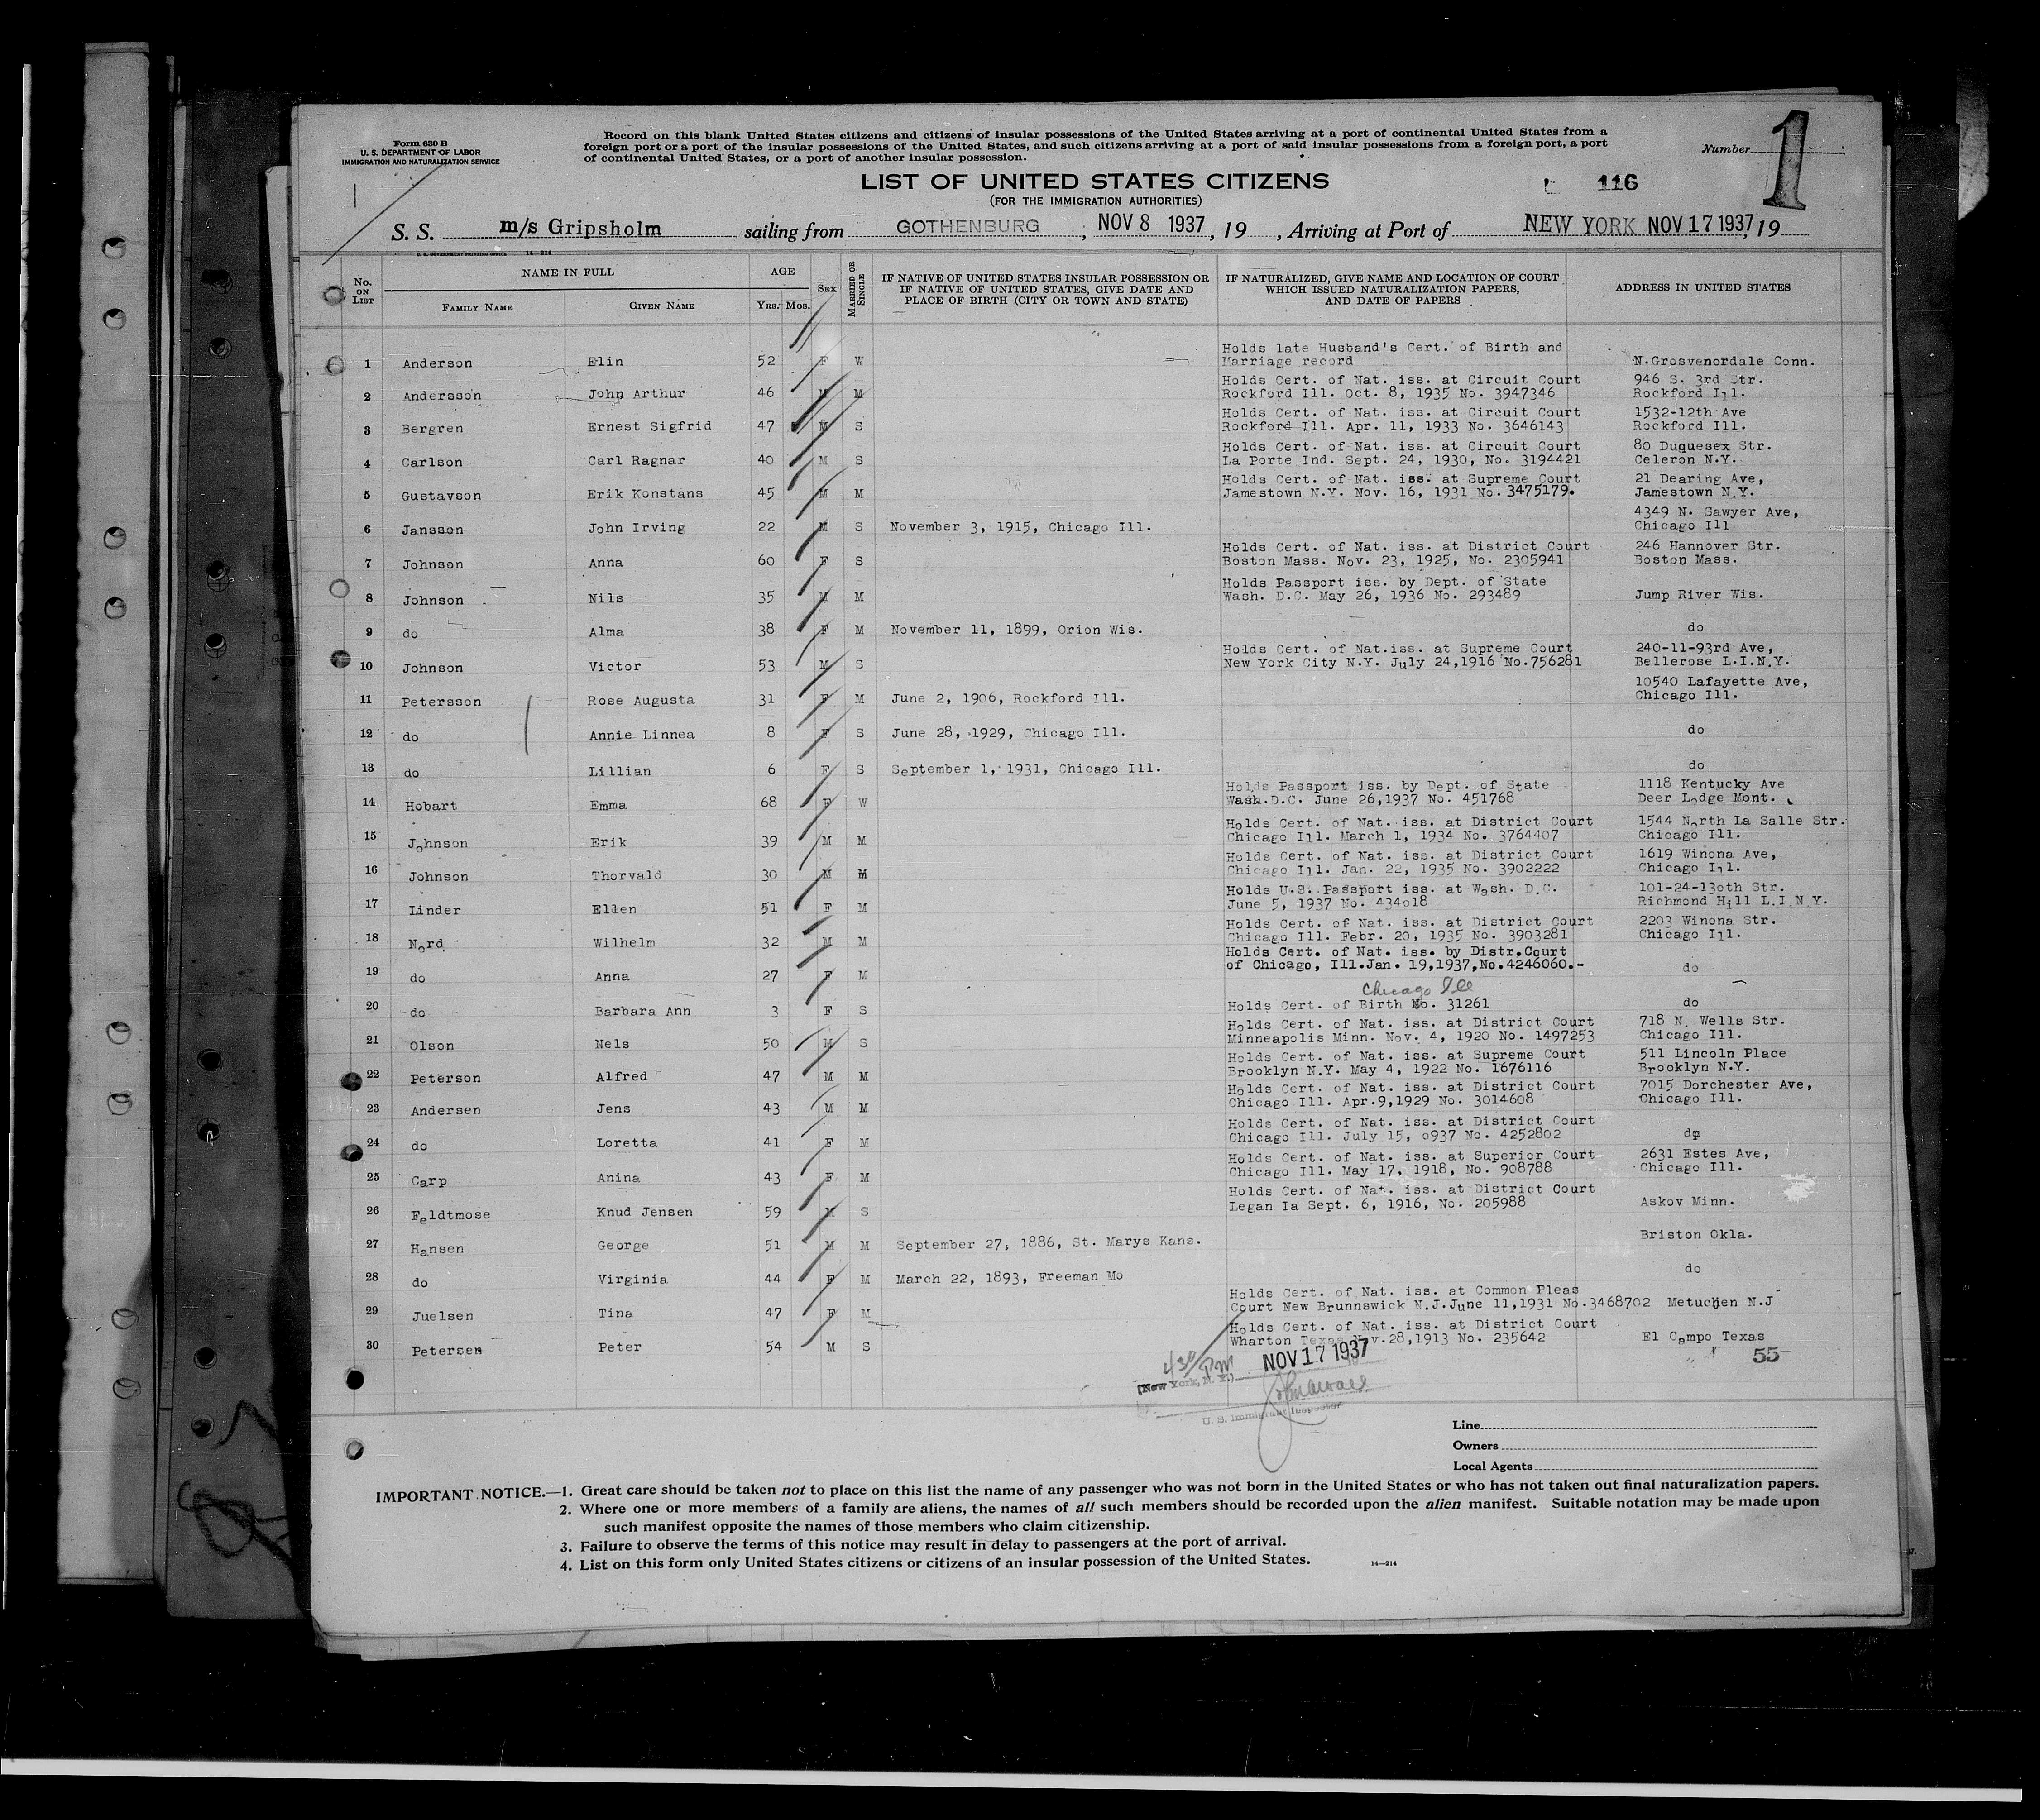 Form 630 B
U. S. DEPARTMENT OF LABOR
IMMIGRATION AND NATURALIZATION SERVICE
Record on this blank United States citizens and citizens of insular possessions of the United States arriving at a port of continental United States from a
foreign port or a port of the insular possessions of the United States, and such citizens arriving at a port of said insular possessions from a foreign port, a port
of continental United States, or a port of another insular possession.
Number 1
LIST OF UNITED STATES CITIZENS
116
(FOR THE IMMIGRATION AUTHORITIES)
S. S. m/s Gripsholm sailing from GOTHENBURG, NOV 8 1937, 19 , Arriving at Port of NEW YORK NOV 17 1937, 19
U. S. GOVERNMENT PRINTING OFFICE 14—214
No. ON LIST NAME IN FULL AGE SEX MARRIED OR SINGLE IF NATIVE OF UNITED STATES INSULAR POSSESSION OR IF NATIVE OF UNITED STATES, GIVE DATE AND PLACE OF BIRTH (CITY OR TOWN AND STATE) IF NATURALIZED, GIVE NAME AND LOCATION OF COURT WHICH ISSUED NATURALIZATION PAPERS, AND DATE OF PAPERS ADDRESS IN UNITED STATES
FAMILY NAME GIVEN NAME YRS. MOS.
Holds late Husband's Cert. of Birth and
1 Anderson Elin 52 F W Marriage record N.Grosvenordale Conn.
Holds Cert. of Nat. iss. at Circuit Court 946 S. 3rd Str.
2 Andersson John Arthur 46 M M Rockford Ill. Oct. 8, 1935 No. 3947346 Rockford Ill.
Holds Cert. of Nat. iss. at Circuit Court 1532-12th Ave
3 Bergren Ernest Sigfrid 47 M S Rockford Ill. Apr. 11, 1933 No. 3646143 Rockford Ill.
Holds Cert. of Nat. iss. at Circuit Court 80 Duquesex Str.
4 Carlson Carl Ragnar 40 M S La Porte Ind. Sept. 24, 1930, No. 3194421 Celeron N.Y.
Holds Cert. of Nat. iss. at Supreme Court 21 Dearing Ave,
5 Gustavson Erik Konstans 45 M M Jamestown N.Y. Nov. 16, 1931 No. 3475179. Jamestown N.Y.
4349 N. Sawyer Ave,
6 Jansson John Irving 22 M S November 3, 1915, Chicago Ill. Chicago Ill
Holds Cert. of Nat. iss. at District Court 246 Hannover Str.
7 Johnson Anna 60 F S Boston Mass. Nov. 23, 1925, No. 2305941 Boston Mass.
Holds Passport iss. by Dept. of State
8 Johnson Nils 35 M M Wash. D.C. May 26, 1936 No. 293489 Jump River Wis.
9 do Alma 38 F M November 11, 1899, Orion Wis. do
Holds Cert. of Nat.iss. at Supreme Court 240-11-93rd Ave,
10 Johnson Victor 53 M S New York City N.Y. July 24,1916 No.756281 Bellerose L.I.N.Y.
10540 Lafayette Ave,
11 Petersson Rose Augusta 31 F M June 2, 1906, Rockford Ill. Chicago Ill.
12 do Annie Linnea 8 F S June 28, 1929, Chicago Ill. do
13 do Lillian 6 F S September 1, 1931, Chicago Ill. do
Holds Passport iss. by Dept. of State 1118 Kentucky Ave
14 Hobart Emma 68 F W Wash.D.C. June 26,1937 No. 451768 Deer Lodge Mont.
Holds Cert. of Nat. iss. at District Court 1544 North La Salle Str.
15 Johnson Erik 39 M M Chicago Ill. March 1, 1934 No. 3764407 Chicago Ill.
Holds Cert. of Nat. iss. at District Court 1619 Winona Ave,
16 Johnson Thorvald 30 M M Chicago Ill. Jan. 22, 1935 No. 3902222 Chicago Ill.
Holds U.S. Passport iss. at Wash. D.C. 101-24-13oth Str.
17 Linder Ellen 51 F M June 5, 1937 No. 434o18 Richmond Hill L.I.N.Y.
Holds Cert. of Nat. iss. at District Court 2203 Winona Str.
18 Nord Wilhelm 32 M M Chicago Ill. Febr. 20, 1935 No. 3903281 Chicago Ill.
Holds Cert. of Nat. iss. by Distr.Court
19 do Anna 27 F M of Chicago, Ill.Jan. 19,1937,No.4246060.- do
Chicago Ill
20 do Barbara Ann 3 F S Holds Cert. of Birth No. 31261 do
Holds Cert. of Nat. iss. at District Court 718 N. Wells Str.
21 Olson Nels 50 M S Minneapolis Minn. Nov. 4, 1920 No. 1497253 Chicago Ill.
Holds Cert. of Nat. iss. at Supreme Court 511 Lincoln Place
22 Peterson Alfred 47 M M Brooklyn N.Y. May 4, 1922 No. 1676116 Brooklyn N.Y.
Holds Cert. of Nat. iss. at District Court 7015 Dorchester Ave,
23 Andersen Jens 43 M M Chicago Ill. Apr.9,1929 No. 3014608 Chicago Ill.
Holds Cert. of Nat. iss. at District Court
24 do Loretta 41 F M Chicago Ill. July 15, o937 No. 4252802 dp
Holds Cert. of Nat. iss. at Superior Court 2631 Estes Ave,
25 Carp Anina 43 F M Chicago Ill. May 17, 1918, No. 908788 Chicago Ill.
Holds Cert. of Nat. iss. at District Court
26 Feldtmose Knud Jensen 59 M S Legan Ia Sept. 6, 1916, No. 205988 Askov Minn.
27 Hansen George 51 M M September 27, 1886, St. Marys Kans. Briston Okla.
28 do Virginia 44 F M March 22, 1893, Freeman Mo do
Holds Cert. of Nat. iss. at Common Pleas
29 Juelsen Tina 47 F M Court New Brunnswick N.J.June 11,1931 No.3468702 Metuchen N.J
Holds Cert. of Nat. iss. at District Court
30 Petersen Peter 54 M S Wharton Texas Nov.28,1913 No. 235642 El Campo Texas
430 PM NOV 17 1937 55
(New York, N. Y.)
U. S. Immigrant Inspector
Line
Owners
Local Agents
IMPORTANT NOTICE.—1. Great care should be taken not to place on this list the name of any passenger who was not born in the United States or who has not taken out final naturalization papers.
2. Where one or more members of a family are aliens, the names of all such members should be recorded upon the alien manifest. Suitable notation may be made upon
such manifest opposite the names of those members who claim citizenship.
3. Failure to observe the terms of this notice may result in delay to passengers at the port of arrival.
4. List on this form only United States citizens or citizens of an insular possession of the United States. 14—214